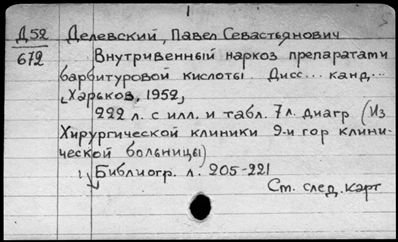 Д52 Делевский, Павел Севастьянович
672 Внутривенный наркоз препаратами
барбитуровой кислоты. Дисс... канд...
Харьков, 1952,
222 л. с илл. и табл. 7 л. диагр (Из
Хирургической клиники 9-й гор клини-
ческой больницы)
Библиогр. л. 205-221
Ст. след. карт